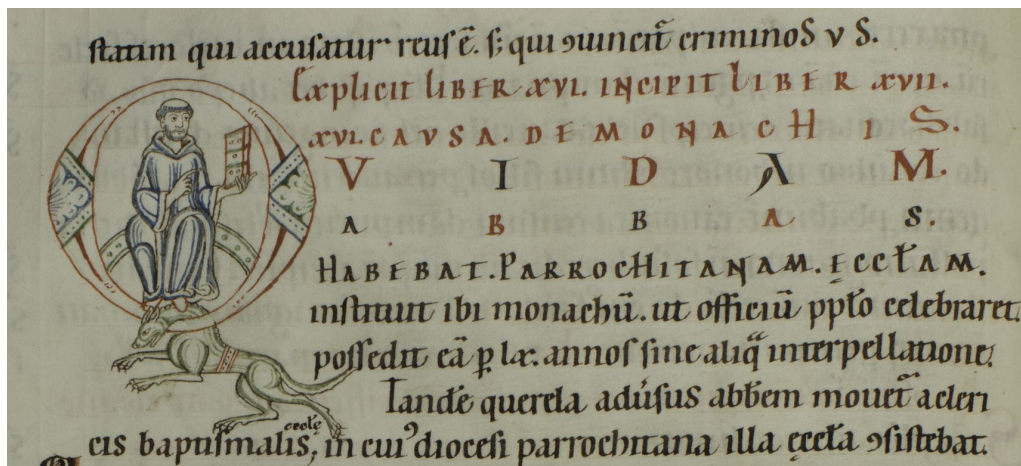 statim qui accusatur reus ē. s; qui ɔuincit᷑ criminoSvS.
Explicit liber xvi. incipit liber xvii.
xvi. CAVSA. DE MONACHIS.
QVIDAM.
ABBAS.
HABEBAT. PARROCHITANAM. ĘCCŁAM.
instituit ibi monachū. ut officiū ppło celebraret.
possedit eā ꝑ lx. annos sine aliq̄ interpellatione.
Tandē querela adúsus abbem mouet᷑ a cleri
cis baptismalis ęccłę; in cui᷒ diocesi parrochitana illa ęccła ɔsistebat.